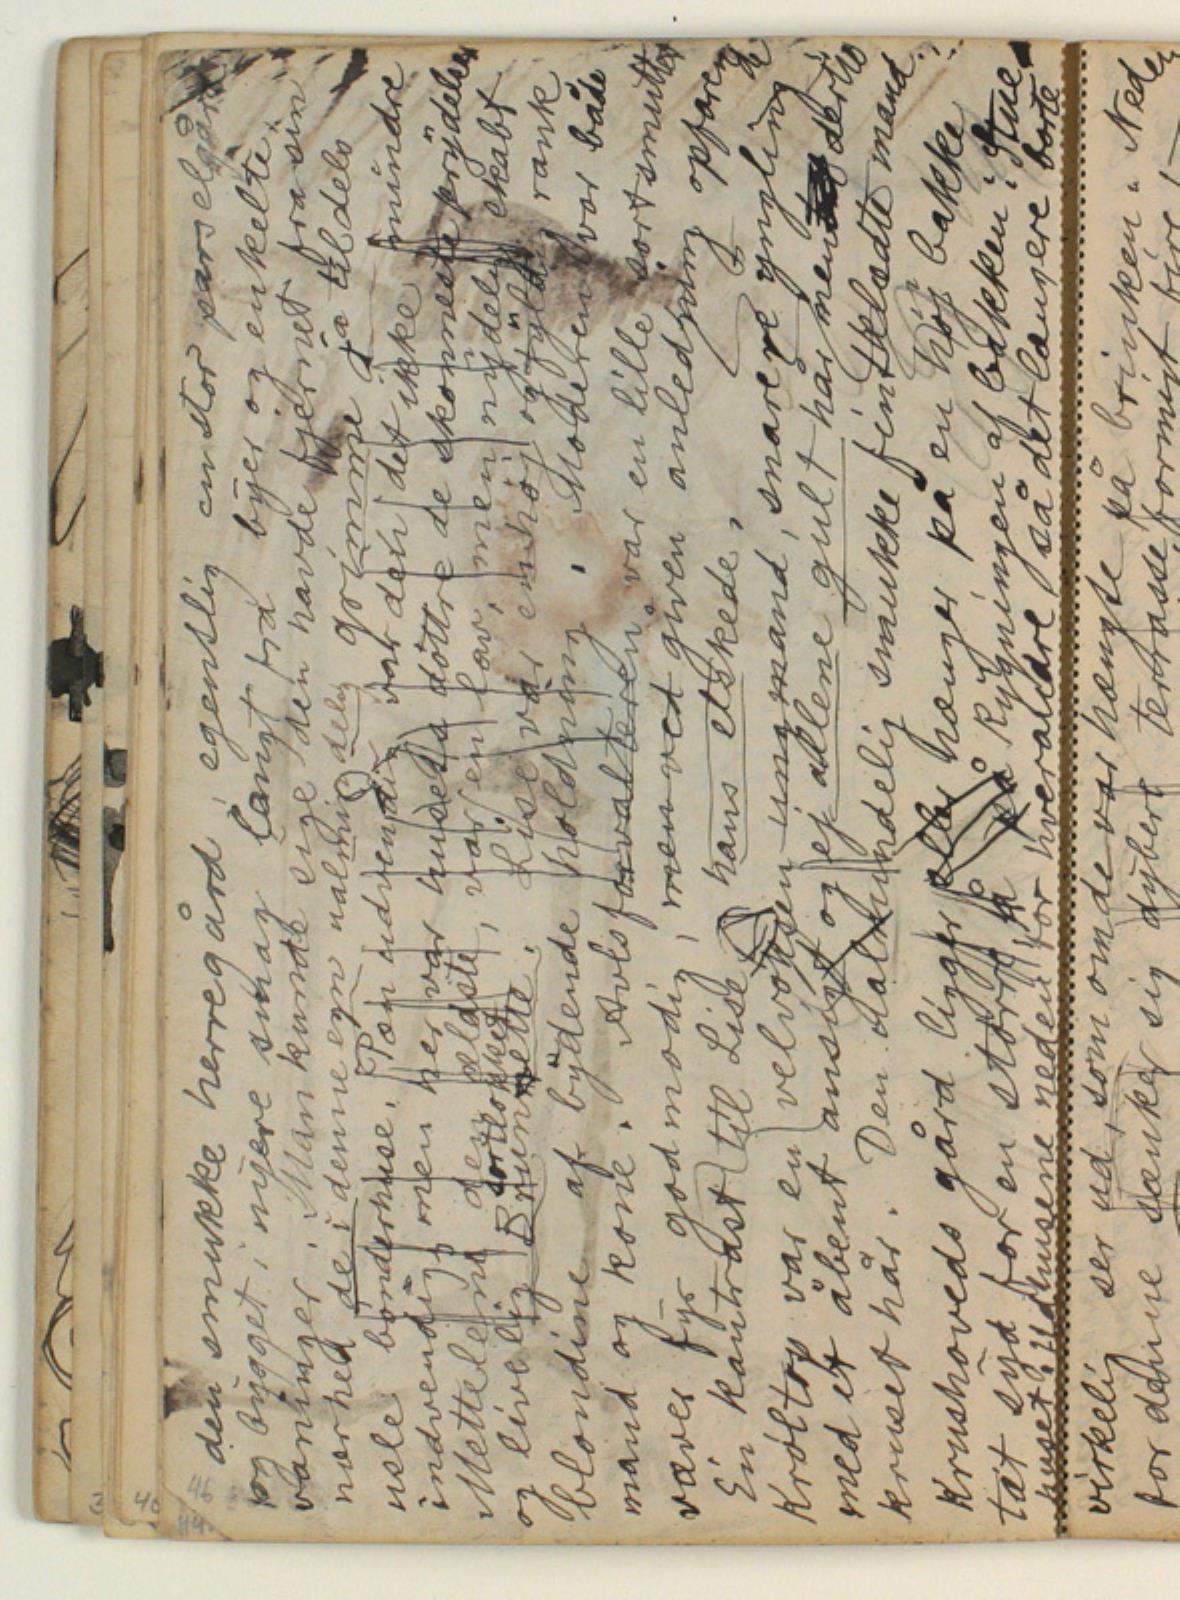 den smukke herregård, egentlig en stor parselgård
og bygget i nyere smag langt fra byer og enkelte
vaninger. Man kunde sige den havde fjernet fra sin
nærhed de i denne egn nalmindelig grimme ja tildels
usle bønderhuse. Pæn udvendig var den det ikke mindre
indvendig men her var husets døttre de skønneste prydelser
Mettelene den ældste, var en lav, men nydelig skabt
og livelig sortlokket Brunette. Lise var en høj og fyldig rank
blondine af bydende holdning. Moderen var både
mand og kone. Avlsforvalteren var en lille sort smutter
væver fyr godmodig, men ved given anledning opfaren
de
En kantrast til Lise hans elskede,
Krøltop var en velvoksen ung mand, snarere yngling
med et åbent ansigt og ej allene gult hår men dertil
kruset hår. Den dalmindelig smukke fintklædte mand.
Krushoveds gård ligger hænger på en høj bakke
tæt syd for en større å på Rygningen af bakken i Stue
huset, Udhusene neden for hveraldre så det længere borte
virkelig ser ud, som om de var hængte på brinken. Neden
for denne sænker sig dybere terrasseformigt